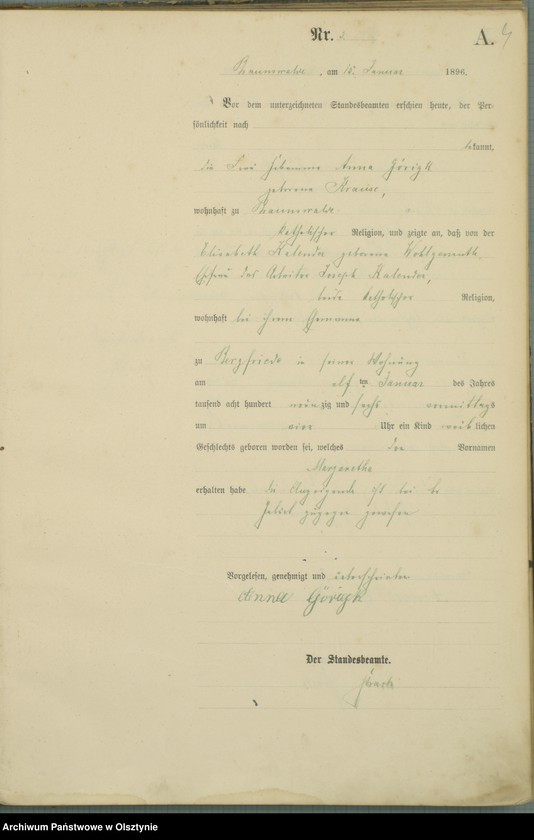 Nr. 2
A. 4
Thaurnwalde, am 15. Januar 1896.
Vor dem unterzeichneten Standesbeamten erschien heute, der Per-
sönlichkeit nach
bekannt,
die Frau Hebamme Anna Görigk
geborene Krause,
wohnhaft zu
katholischer Religion, und zeigte an, daß von der
Elisabeth Kalender geborene
Ehefrau des Arbeiter Joseph Kalender,
beide katholischer Religion,
wohnhaft bei ihrem Ehemanne
zu Bergfriede in seiner Wohnung
am elf ten Januar des Jahres
tausend acht hundert neunzig und sechs vormittags
um vier Uhr ein Kind weiblichen
Geschlechts geboren worden sei, welches den Vornamen
Margarethe
erhalten habe die Anzeigende ist bei der
Geburt zugegen gewesen
Vorgelesen, genehmigt und unterschrieben
Anna Görigk
Der Standesbeamte.
Archiwum Państwowe w Olsztynie